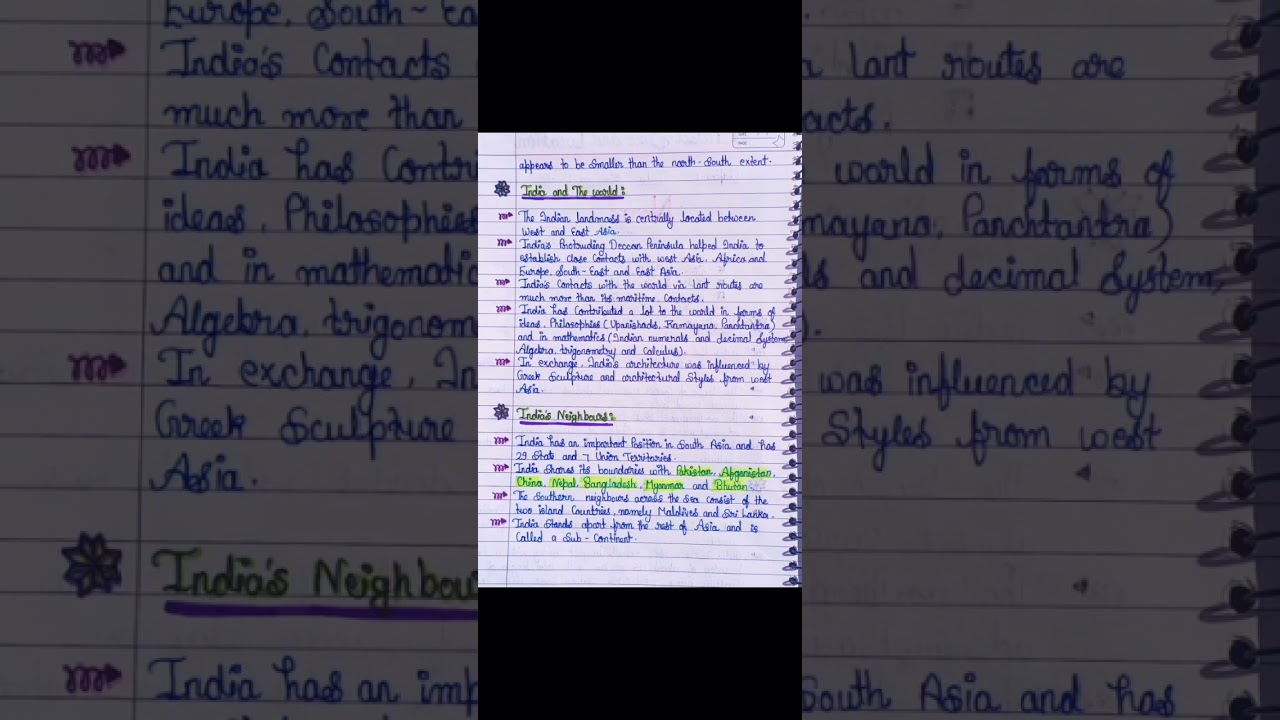 appears to be smaller than the north-South extent.
India and The world:
The Indian landmass is centrally located between
West and East Asia.
India's Protruding Deccan Peninsula helped India to
establish close Contacts with west Asia, Africa and
Europe, South-East and East Asia.
India's Contacts with the world via lant routes are
much more than its maritime Contacts.
India has Contributed a lot to the world in forms of
ideas, Philosophies (Upanishads, Ramayana, Panchtantra)
and in mathematics (Indian numerals and decimal System,
Algebra, trigonometry and Calculus).
In exchange, India's architecture was influenced by
Greek Sculpture and architectural Styles from west
Asia.
India's Neighbours:
India has an important Position in South Asia and has
29 State and 7 Union Territories.
India Shares its boundaries with Pakistan, Afganistan,
China, Nepal, Bangladesh, Myanmar and Bhutan.
The Southern neighbours across the Sea consist of the
two island Countries, namely Maldives and Sri Lanka.
India Stands apart from the rest of Asia and is
Called a Sub-Continent.